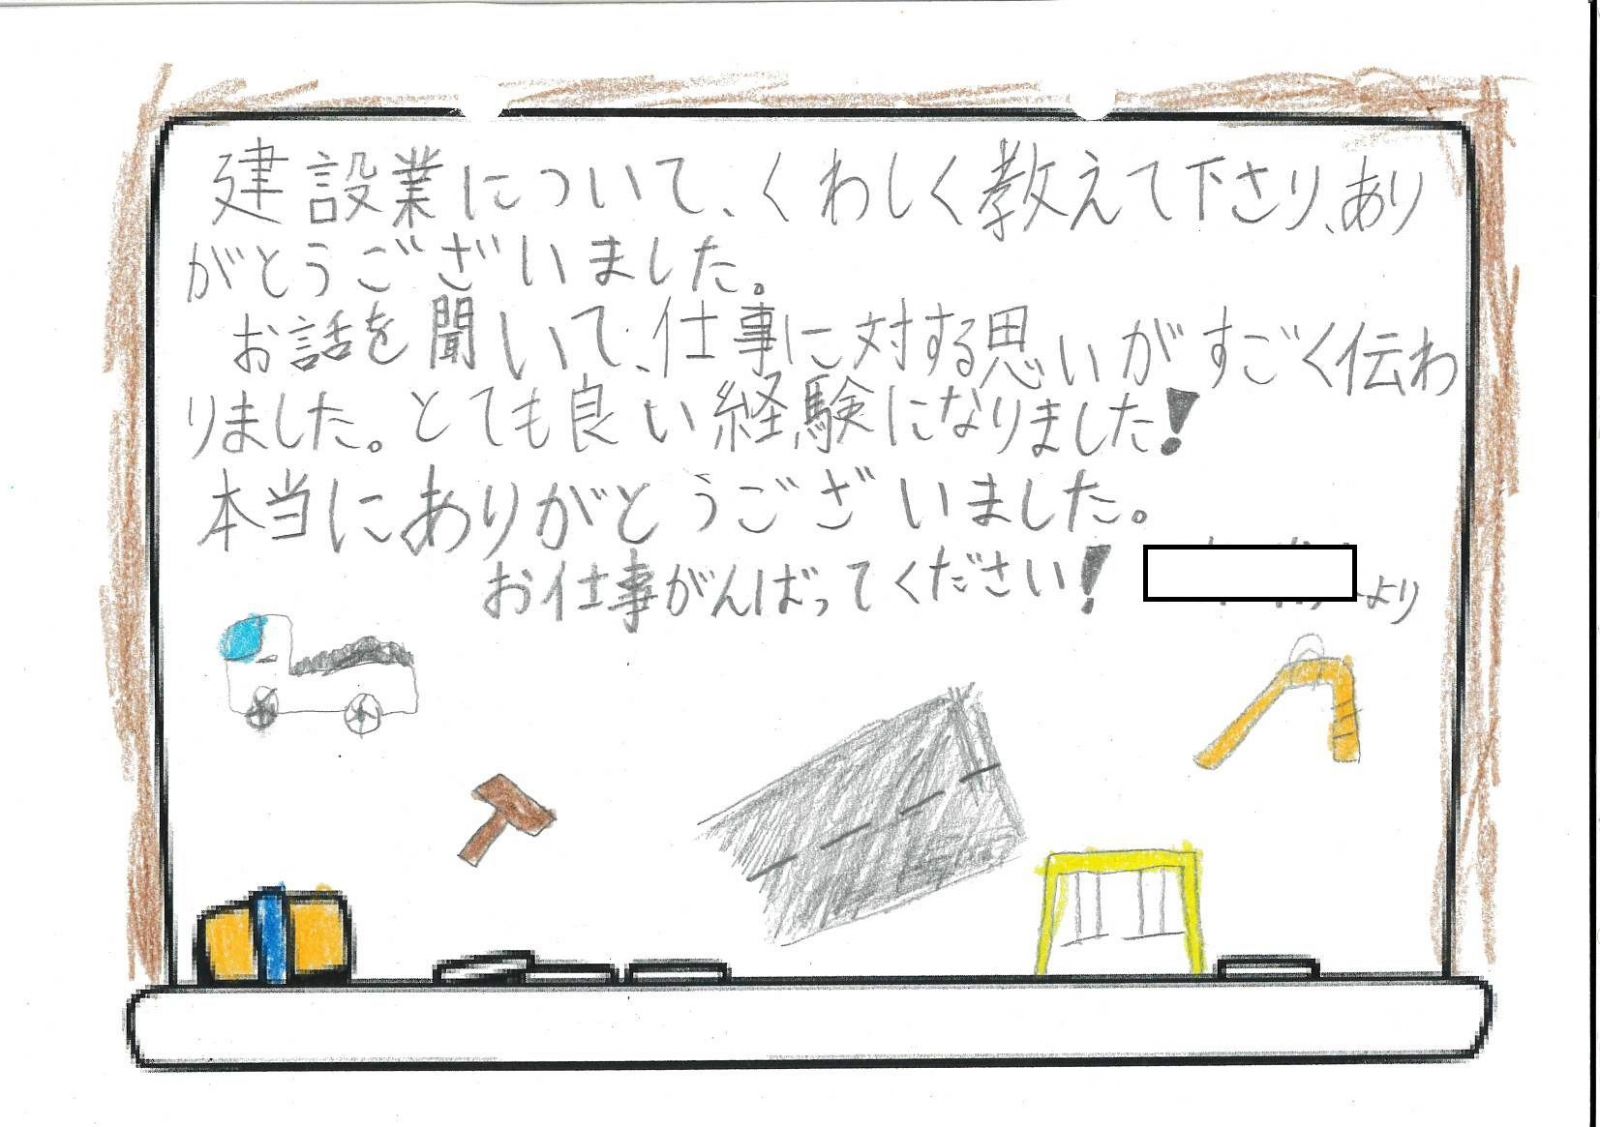 建設業について、くわしく教えて下さり、あり
がとうございました。
お話を聞いて、仕事に対する思いがすごく伝わ
りました。とても良い経験になりました!
本当にありがとうございました。
お仕事がんばってください!
より